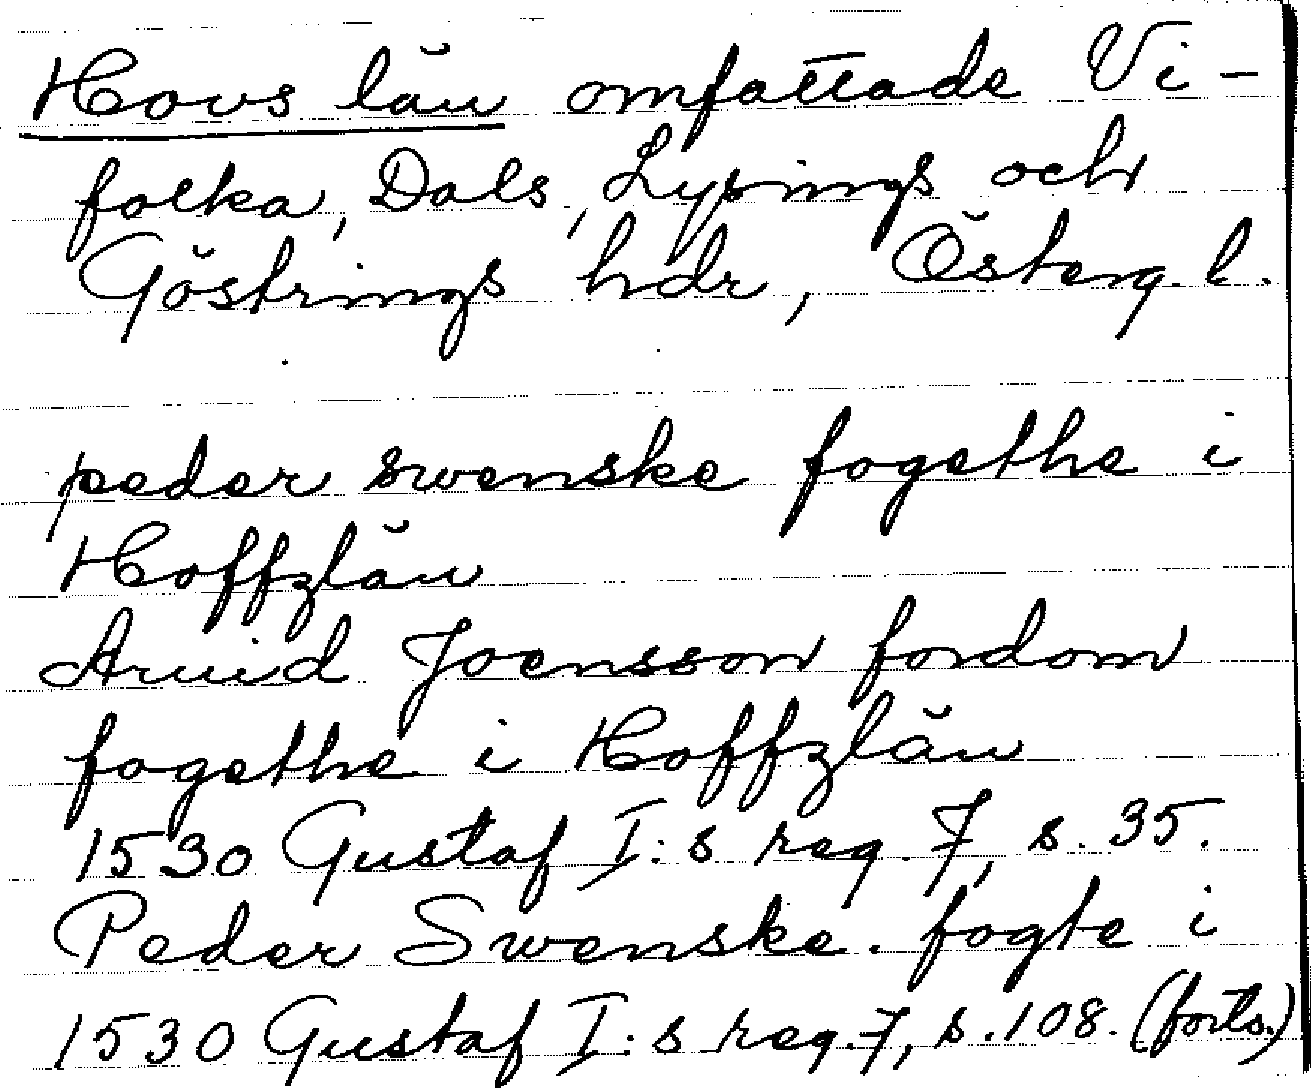 Hovs län omfattade Vi-
folka, Dals, Lysings och
Göstrings hdr, Österg. l.
peder swenske fogethe i
Hoffzlän
Arvid Joensson fordom
fogethe i Hoffzlän
1530 Gustaf I:s reg. 7, s. 35.
Peder Swenske. fogte i
1530 Gustaf I:s reg. 7, s. 108. (forts.)